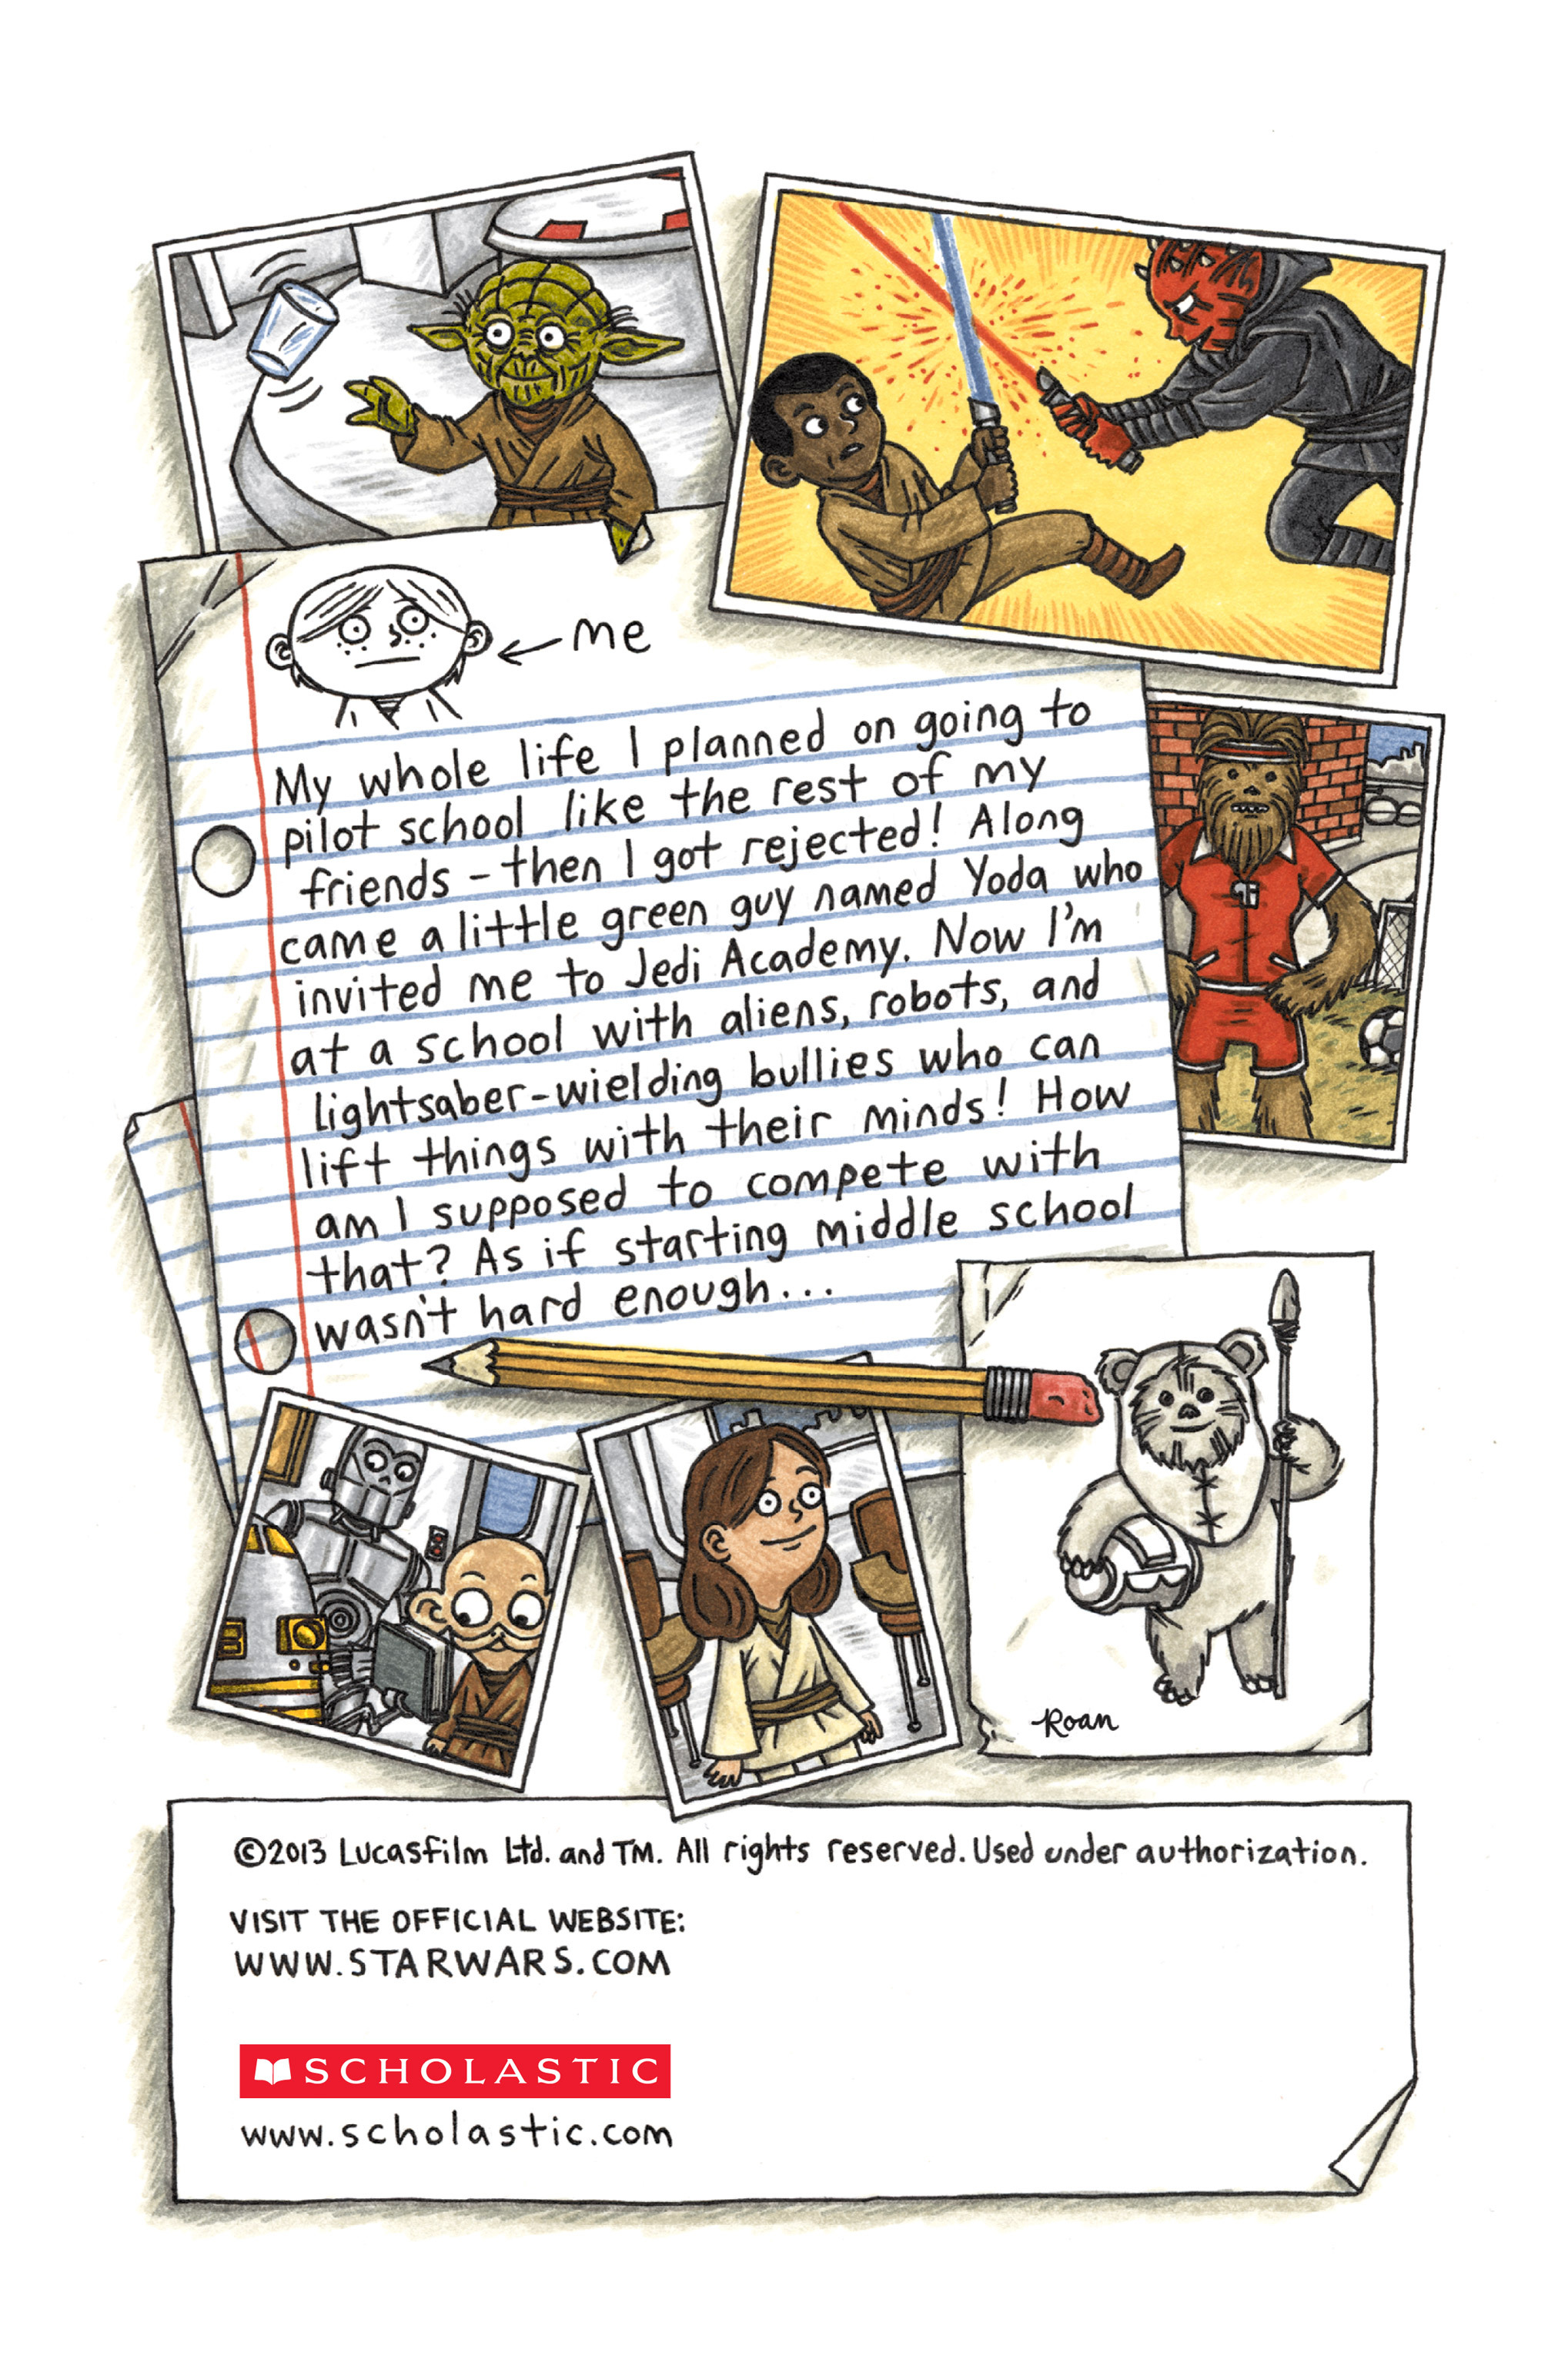 me
My whole life I planned on going to
pilot school like the rest of my
friends - then I got rejected! Along
came a little green guy named Yoda who
invited me to Jedi Academy. Now I'm
at a school with aliens, robots, and
lightsaber-wielding bullies who can
lift things with their minds! How
am I supposed to compete with
that? As if starting middle school
wasn't hard enough...
Roan
©2013 Lucasfilm Ltd. and TM. All rights reserved. Used under authorization.
VISIT THE OFFICIAL WEBSITE:
WWW.STARWARS.COM
SCHOLASTIC
www.scholastic.com